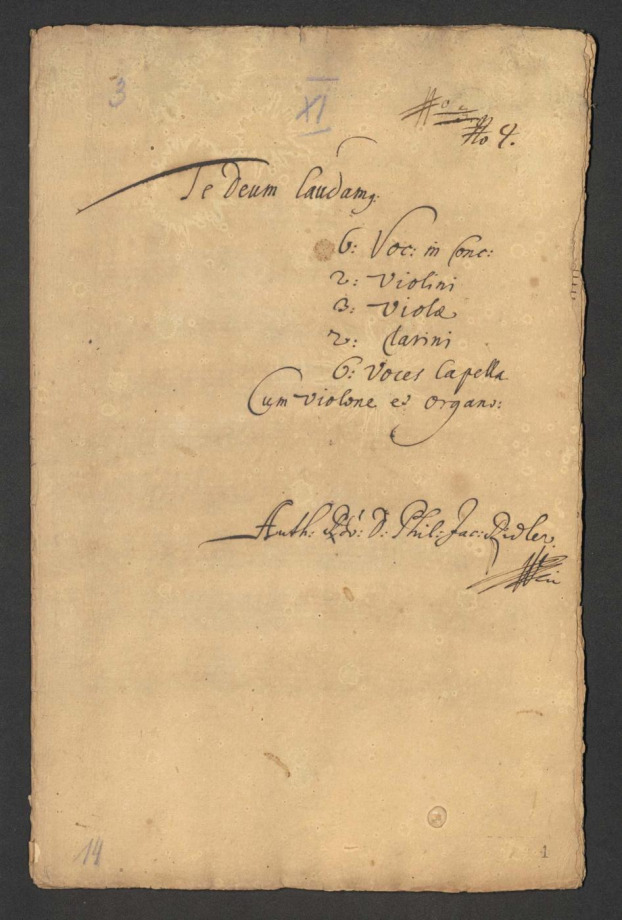 3
XI
No 3
No 4.
Te Deum laudamq.
6: Voc: in Conc:
2: Violini
3: Violæ
2: Clarini
6: Voces Capella
Cum Violone et Organo:
Auth: Rdo: D: Phil: Jac: Ridler
14
1